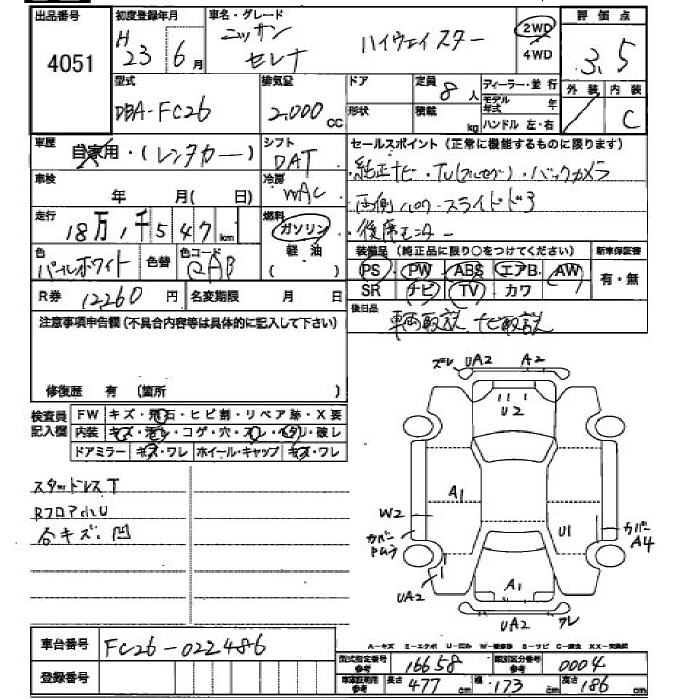 出品番号
4051
初度登録年月
H 23 6月
車名・グレード
ニッサン
セレナ ハイウェイスター
2WD
4WD
評価点
3.5
外装 内装
C
型式
DBA-FC26
排気量
2,000cc
ドア
形状
定員
8人
積載
kg
ディーラー・並行
モデル年式 年
ハンドル 左・右
車歴
自家用・(レンタカー)
シフト
DAT
車検
年 月( 日)
冷房
WAC
走行
18万1千547km
燃料
ガソリン
軽油
色
パールホワイト
色替
色コード
QAB
R券 12260円
名変期限 月 日
セールスポイント(正常に機能するものに限ります)
純正ナビ・TV(フルセグ)・バックカメラ
両側パワースライドドア
後席モニター
装備品(純正品に限り○をつけてください)
新車保証書
PS PW ABS エアB AW
SR ナビ TV カワ
有・無
後日品
車両取説 ナビ取説
注意事項申告欄(不具合内容等は具体的に記入して下さい)
修復歴 有(箇所 )
検査員記入欄
FW キズ・飛石・ヒビ割・リペア跡・X要
内装 キズ・汚レ・コゲ・穴・スレ・ヘタリ・破レ
ドアミラー キズ・ワレ ホイール・キャップ キズ・ワレ
スタッドレスT
Rフロア小U
合キズ・凹
ズレ UA2 A2
U2
A1
W2
カバー
U1
カバー
A4
UA2
A1
UA2 ワレ
車台番号
FC26-022486
登録番号
A-キズ E-エクボ U-凹ミ W-補修跡 S-サビ C-腐食 XX-交換済
型式指定番号
参考
16658
類別区分番号
参考
0004
車庫証明用
参考
長さ 477cm
幅 173cm
高さ 186cm